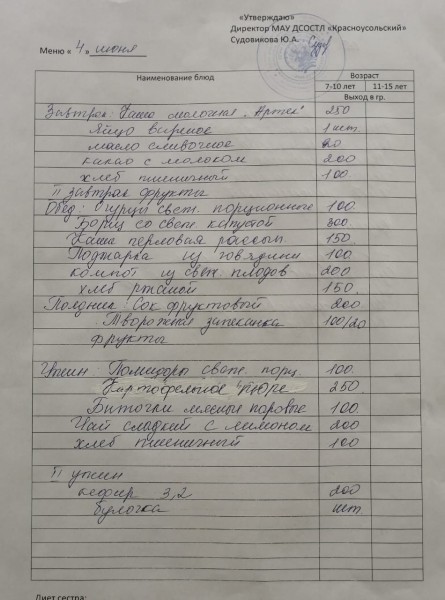 «Утверждаю»
Директор МАУ ДСОСТЛ «Красноусольский»
Судовикова Ю.А.
Меню « 4 » июня
Наименование блюд Возраст
7-10 лет 11-15 лет
Выход в гр.
Завтрак: Каша молочная „Артек" 250
Яйцо вареное 1 шт.
масло сливочное 20
какао с молоком 200
хлеб пшеничный 100
II завтрак фрукты
Обед: огурцы свеж. порционные 100
Борщ со свеж капустой 300
Каша перловая рассып. 150
Поджарка из говядины 100
компот из свеж. плодов 200
хлеб ржаной 150
Полдник Сок фруктовый 200
Творожная запеканка 100/20
фрукты
Ужин: Помидоры свеж. порц. 100
Картофельное пюре 250
Биточки мясные паровые 100
Чай сладкий с лимоном 200
хлеб пшеничный 100
II ужин
кефир 3,2 200
булочка шт
Диет сестра: